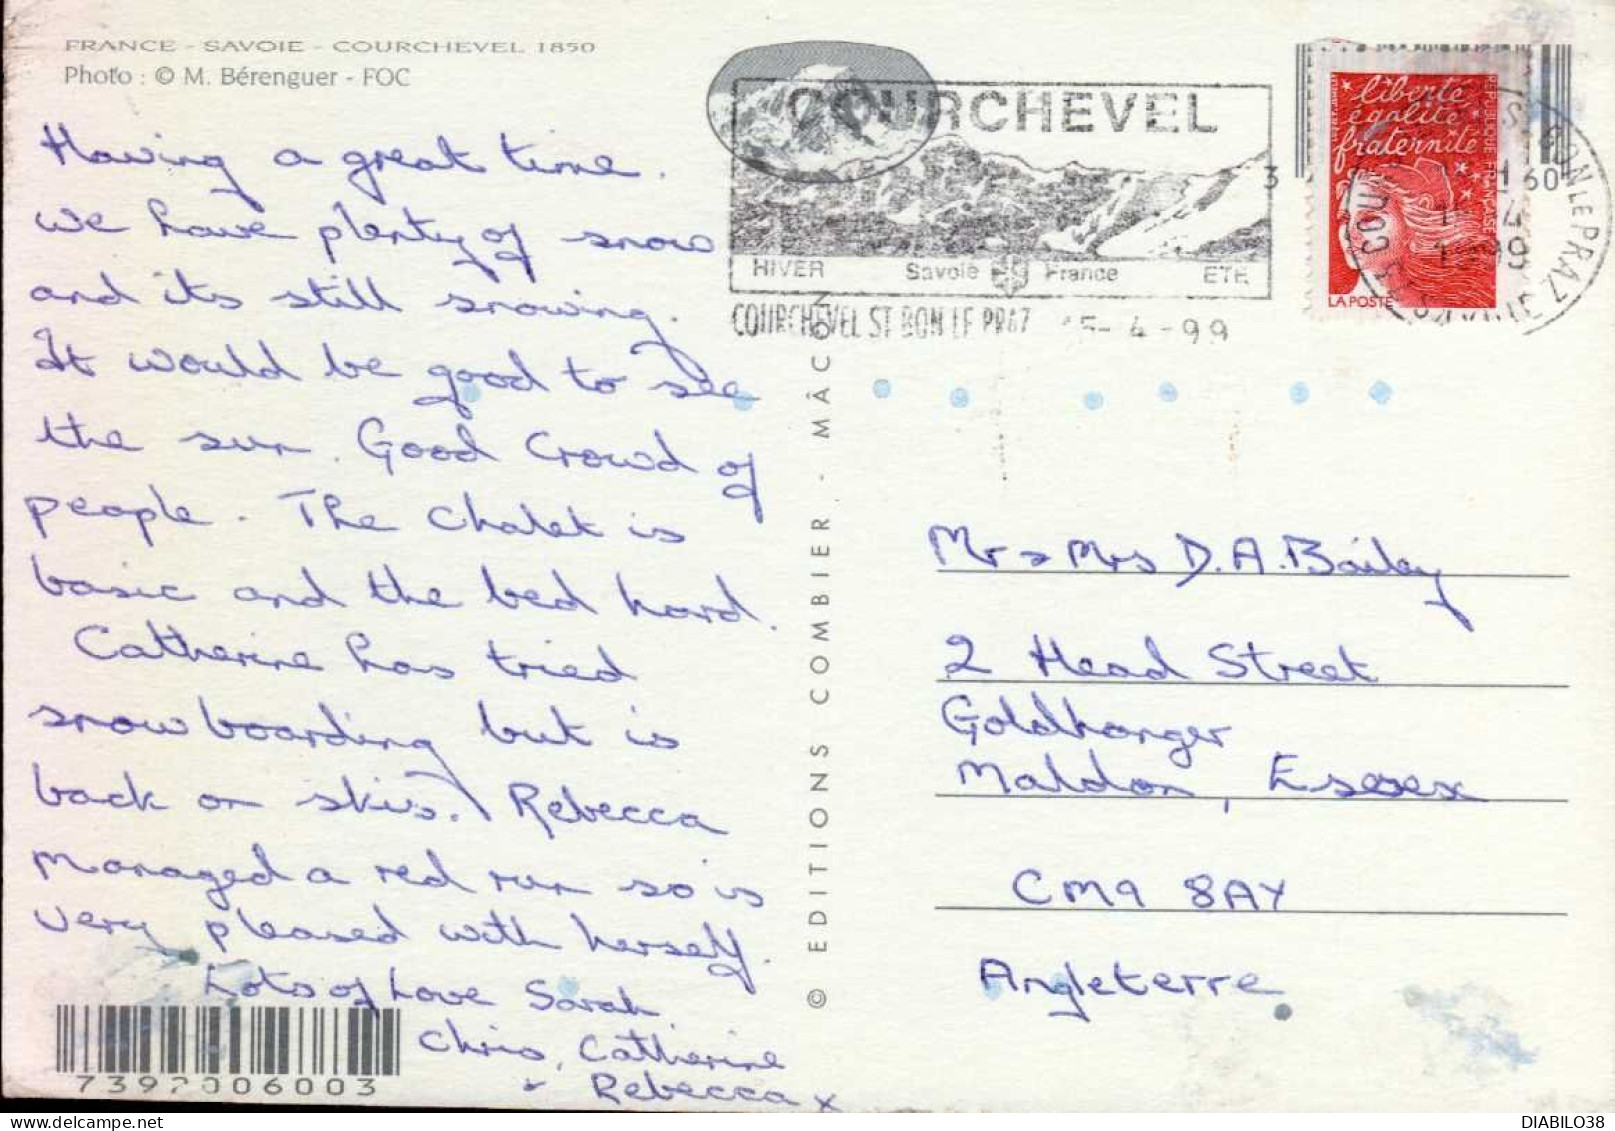 FRANCE - SAVOIE - COURCHEVEL 1850
Photo : © M. Bérenguer - FOC
Having a great time.
we have plenty of snow
and its still snowing.
It would be good to see
the sun. Good Crowd of
people. The Chalet is
basic and the bed hard.
Catherine has tried
snowboarding but is
back on skis. Rebecca
managed a red run so is
very pleased with herself.
Lots of Love Sarah
Chris, Catherine
& Rebecca x
7397006003
© EDITIONS COMBIER - MÂCON
COURCHEVEL
HIVER Savoie France ETE
COURCHEVEL ST BON LE PRAZ 15-4-99
liberté
égalité
fraternité
REPUBLIQUE FRANÇAISE
LA POSTE
Mr & Mrs D.A. Bailey
2 Head Street
Goldhanger
Maldon, Essex
CM9 8AY
Angleterre
DIABILO38